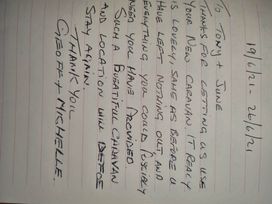 19/6/21 - 26/6/21
TO TONY + JUNE
THANKS FOR LETTING US USE
YOUR NEW CARAVAN. IT REALY
IS LOVELY. SAME AS BEFORE U
HAVE LEFT NOTHING OUT, AND
EVERYTHING YOU COULD POSSIBLY
NEED YOU HAVE PROVIDED
SUCH A BEAUTIFUL CARAVAN
AND LOCATION WILL DEFFO
STAY AGAIN.
THANK YOU
GEOFF + MICHELLE.